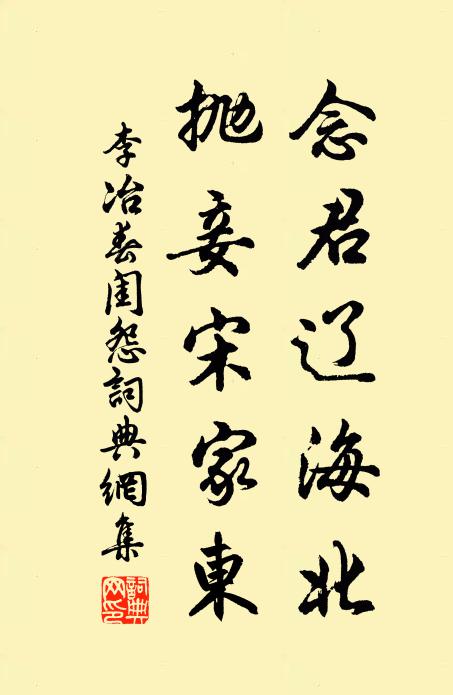 念君辽海北
抛妾宋家東
李冶春闺怨詞典網集
詞典網印